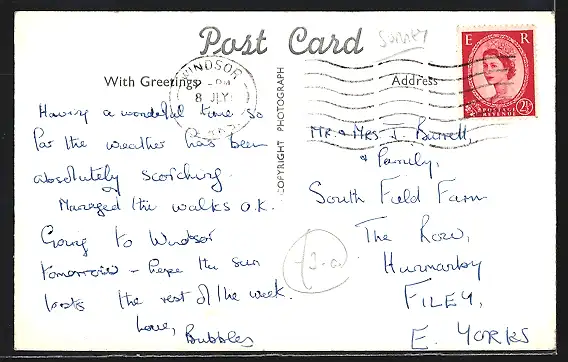 Post Card
Surrey
With Greetings
Address
COPYRIGHT PHOTOGRAPH
WINDSOR
PM
8 JLY
E R
POSTAGE
REVENUE
2½
Having a wonderful time so
far the weather has been
absolutely scorching.
Managed the walks o.k.
Going to Windsor
tomorrow – hope the sun
lasts the rest of the week.
Love,
Bubbles
Mr & Mrs J. Barrett,
& Family,
South Field Farm
The Row,
Hunmanby
FILEY,
E. YORKS